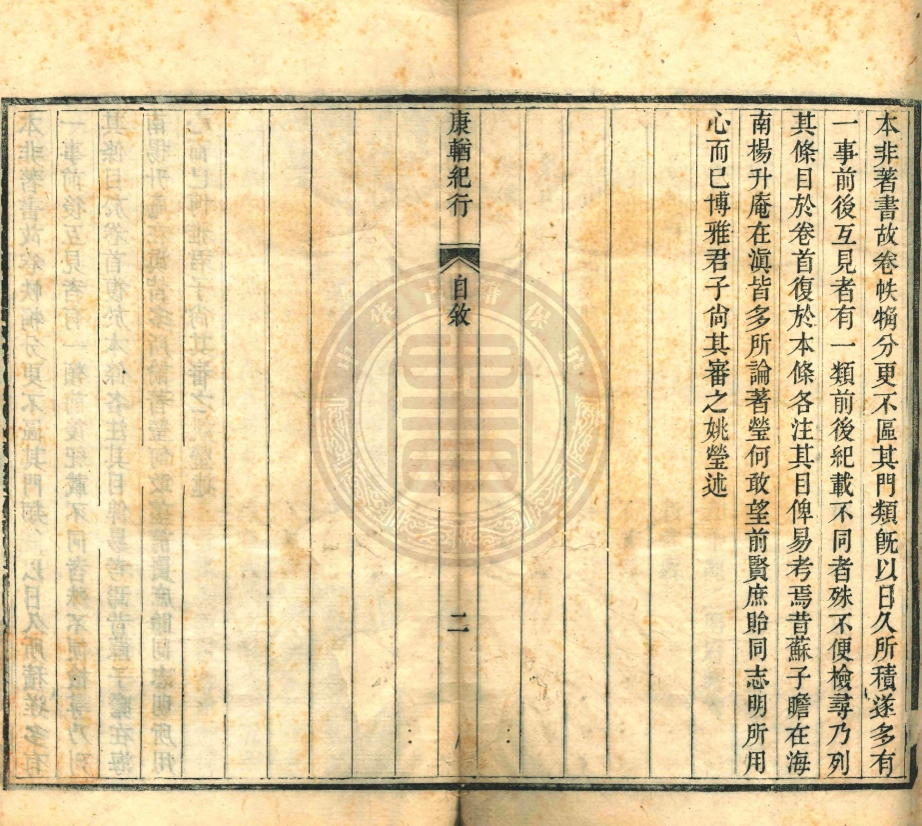 本非著書故卷帙犓分更不區其門類旣以日久所積遂多有
一事前後互見者有一類前後紀載不同者殊不便檢尋乃列
其條目於卷首復於本條各注其目俾易考焉昔蘇子瞻在海
南楊升庵在滇皆多所論著瑩何敢望前賢庶貽同志明所用
心而已博雅君子尙其審之姚瑩述
康輶紀行
自敘
二